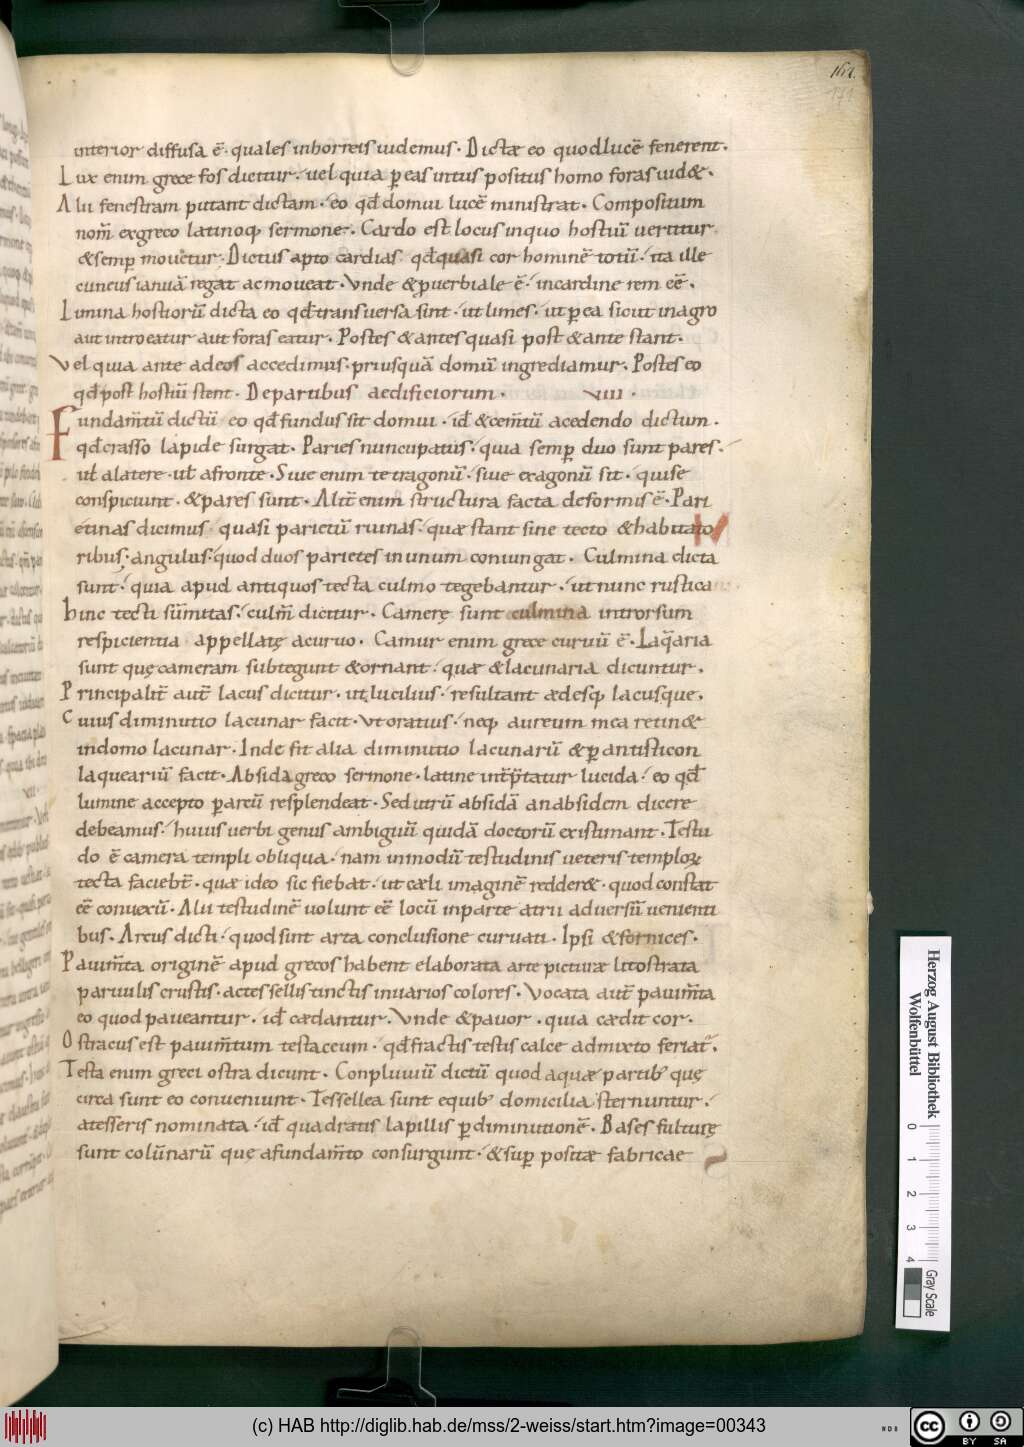 164
171
interior diffusa ē· quales inhorreis uidemus· Dictæ eo quodlucē fenerent·
Lux enim grece fos dicitur· uel quia p̄ eas intus positus homo foras uid&·
Alii fenestram putant dictam· eo qd̄ domui lucē ministrat· Compositum
nom̄ exgreco latinoq; sermone· Cardo est locus inquo hostiū uertitur
&semp̄ mouetur· Dictus apto cardias qd̄quasi cor hominē totū· ita ille
cuneus ianuā regat acmoueat· Vnde &p̄uerbiale ē· incardine rem eē·
Limina hostiorū dicta eo qd̄transuersa sint· ut limes· ut p̄ ea sicut inagro
aut introeatur aut foras eatur· Postes &antes quasi post &ante stant·
Vel quia ante adeos accedimus· priusquā domū ingrediamur· Postes eo
qd̄post hostiū stent· Departibus aedificiorum· VIIII·
Fundam̄tū dictū eo qd̄fundus sit domui· id̄ &cem̄tū acedendo dictum·
qd̄crasso lapide surgat· Paries nuncupatus· quia semp̄ duo sunt pares·
ul̄ alatere· ul̄ afronte· Siue enim tetragonū· siue exagonū sit· quise
conspiciunt· &pares sunt· Alit̄ enim structura facta deformis ē· Pari
etinas dicimus quasi parietū ruinas· quæ stant sine tecto &habitato
ribus· angulus· quod duos parietes inunum coniungat· Culmina dicta
sunt· quia apud antiquos tecta culmo tegebantur· ut nunc rustica
hinc tecti sūmitas· culm̄ dicitur· Camerę sunt culmina introrsum
respicientia appellatę acuruo· Camur enim grece curuū ē· Laq̄aria
sunt quę cameram subtegunt &ornant· quæ &lacunaria dicuntur·
Principalit̄ aut̄ lacus dicitur· ut lucilius· resultant ædesq; lacusque·
Cuius diminutio lacunar facit· Vt oratius· neq; aureum mea retin&
indomo lacunar· Inde fit alia diminutio lacunarū &p̄ antisticon
laqueariū facit· Absida greco sermone· latine int̄p̄tatur lucida· eo qd̄
lumine accepto p̄ arcū resplendeat· Sed utrū absidā anabsidem dicere
debeamus· huius uerbi genus ambiguū quidā doctorū existimant· Testu
do ē camera templi obliqua· nam inmodū testudinis ueteris temploꝝ
tecta faciebt̄· quæ ideo sic fiebat· ut cæli imaginē redder&· quod constat
eē conuexū· Alii testudinē uolunt eē locū inparte atrii aduersū uenienti
bus· Arcus dicti· quod sint arta conclusione curuati· Ipsi &fornices·
Pauim̄ta originē apud grecos habent elaborata arte picturæ litostrata
paruulis crustis· actessellis tinctis inuarios colores· Vocata aut̄ pauim̄ta
eo quod paueantur· id̄ cædantur· Vnde &pauor· quia cædit cor·
Ostracus est pauim̄tum testaceum· qd̄fractis testis calce admixto feriat᷑·
Testa enim greci ostra dicunt· Conpluuiū dictū quod aquæ partib; quę
circa sunt eo conueniunt· Tessellea sunt equib; domicilia sternuntur·
atesseris nominata· id̄ quadratis lapillis p̄ diminutionē· Bases fulturę
sunt colūnarū quę afundam̄to consurgunt· &sup̄ positæ fabricae
Herzog August Bibliothek
Wolfenbüttel
0 1 2 3 4
Gray Scale
(c) HAB http://diglib.hab.de/mss/2-weiss/start.htm?image=00343
cc BY SA